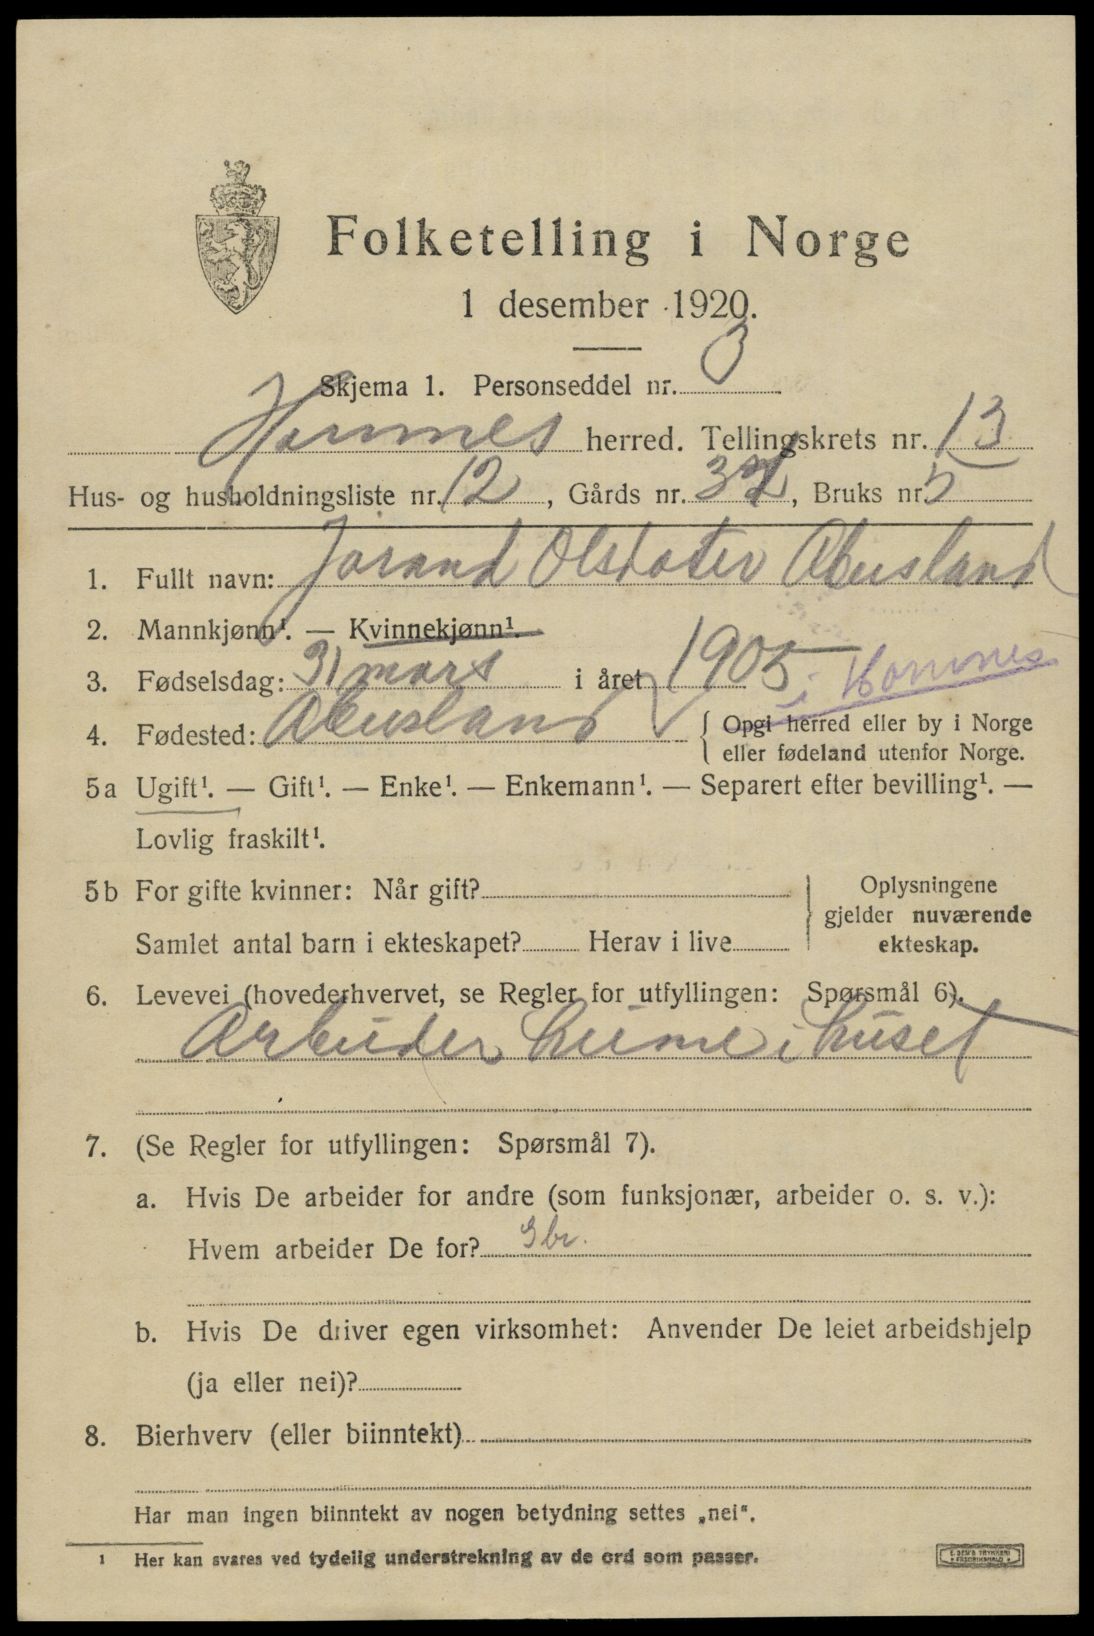 Folketelling i Norge
1 desember 1920.
Skjema 1. Personseddel nr. 3
Hornnes herred. Tellingskrets nr. 13
Hus- og husholdningsliste nr. 12, Gårds nr. 32, Bruks nr. 5
1. Fullt navn: Jorand Olsdater Abusland
2. Mannkjønn¹. — Kvinnekjønn¹.
3. Fødselsdag: 31 mars i året 1905
i Hornnes
4. Fødested: Abusland { Opgi herred eller by i Norge
eller fødeland utenfor Norge.
5a Ugift¹. — Gift¹. — Enke¹. — Enkemann¹. — Separert efter bevilling¹. —
Lovlig fraskilt¹.
5b For gifte kvinner: Når gift?
Samlet antal barn i ekteskapet? Herav i live
Oplysningene
gjelder nuværende
ekteskap.
6. Levevei (hovederhvervet, se Regler for utfyllingen: Spørsmål 6).
Arbeider heime i huset
7. (Se Regler for utfyllingen: Spørsmål 7).
a. Hvis De arbeider for andre (som funksjonær, arbeider o. s. v.):
Hvem arbeider De for? Gbr.
b. Hvis De driver egen virksomhet: Anvender De leiet arbeidshjelp
(ja eller nei)?
8. Bierhverv (eller biinntekt)
Har man ingen biinntekt av nogen betydning settes „nei“.
¹ Her kan svares ved tydelig understrekning av de ord som passer.